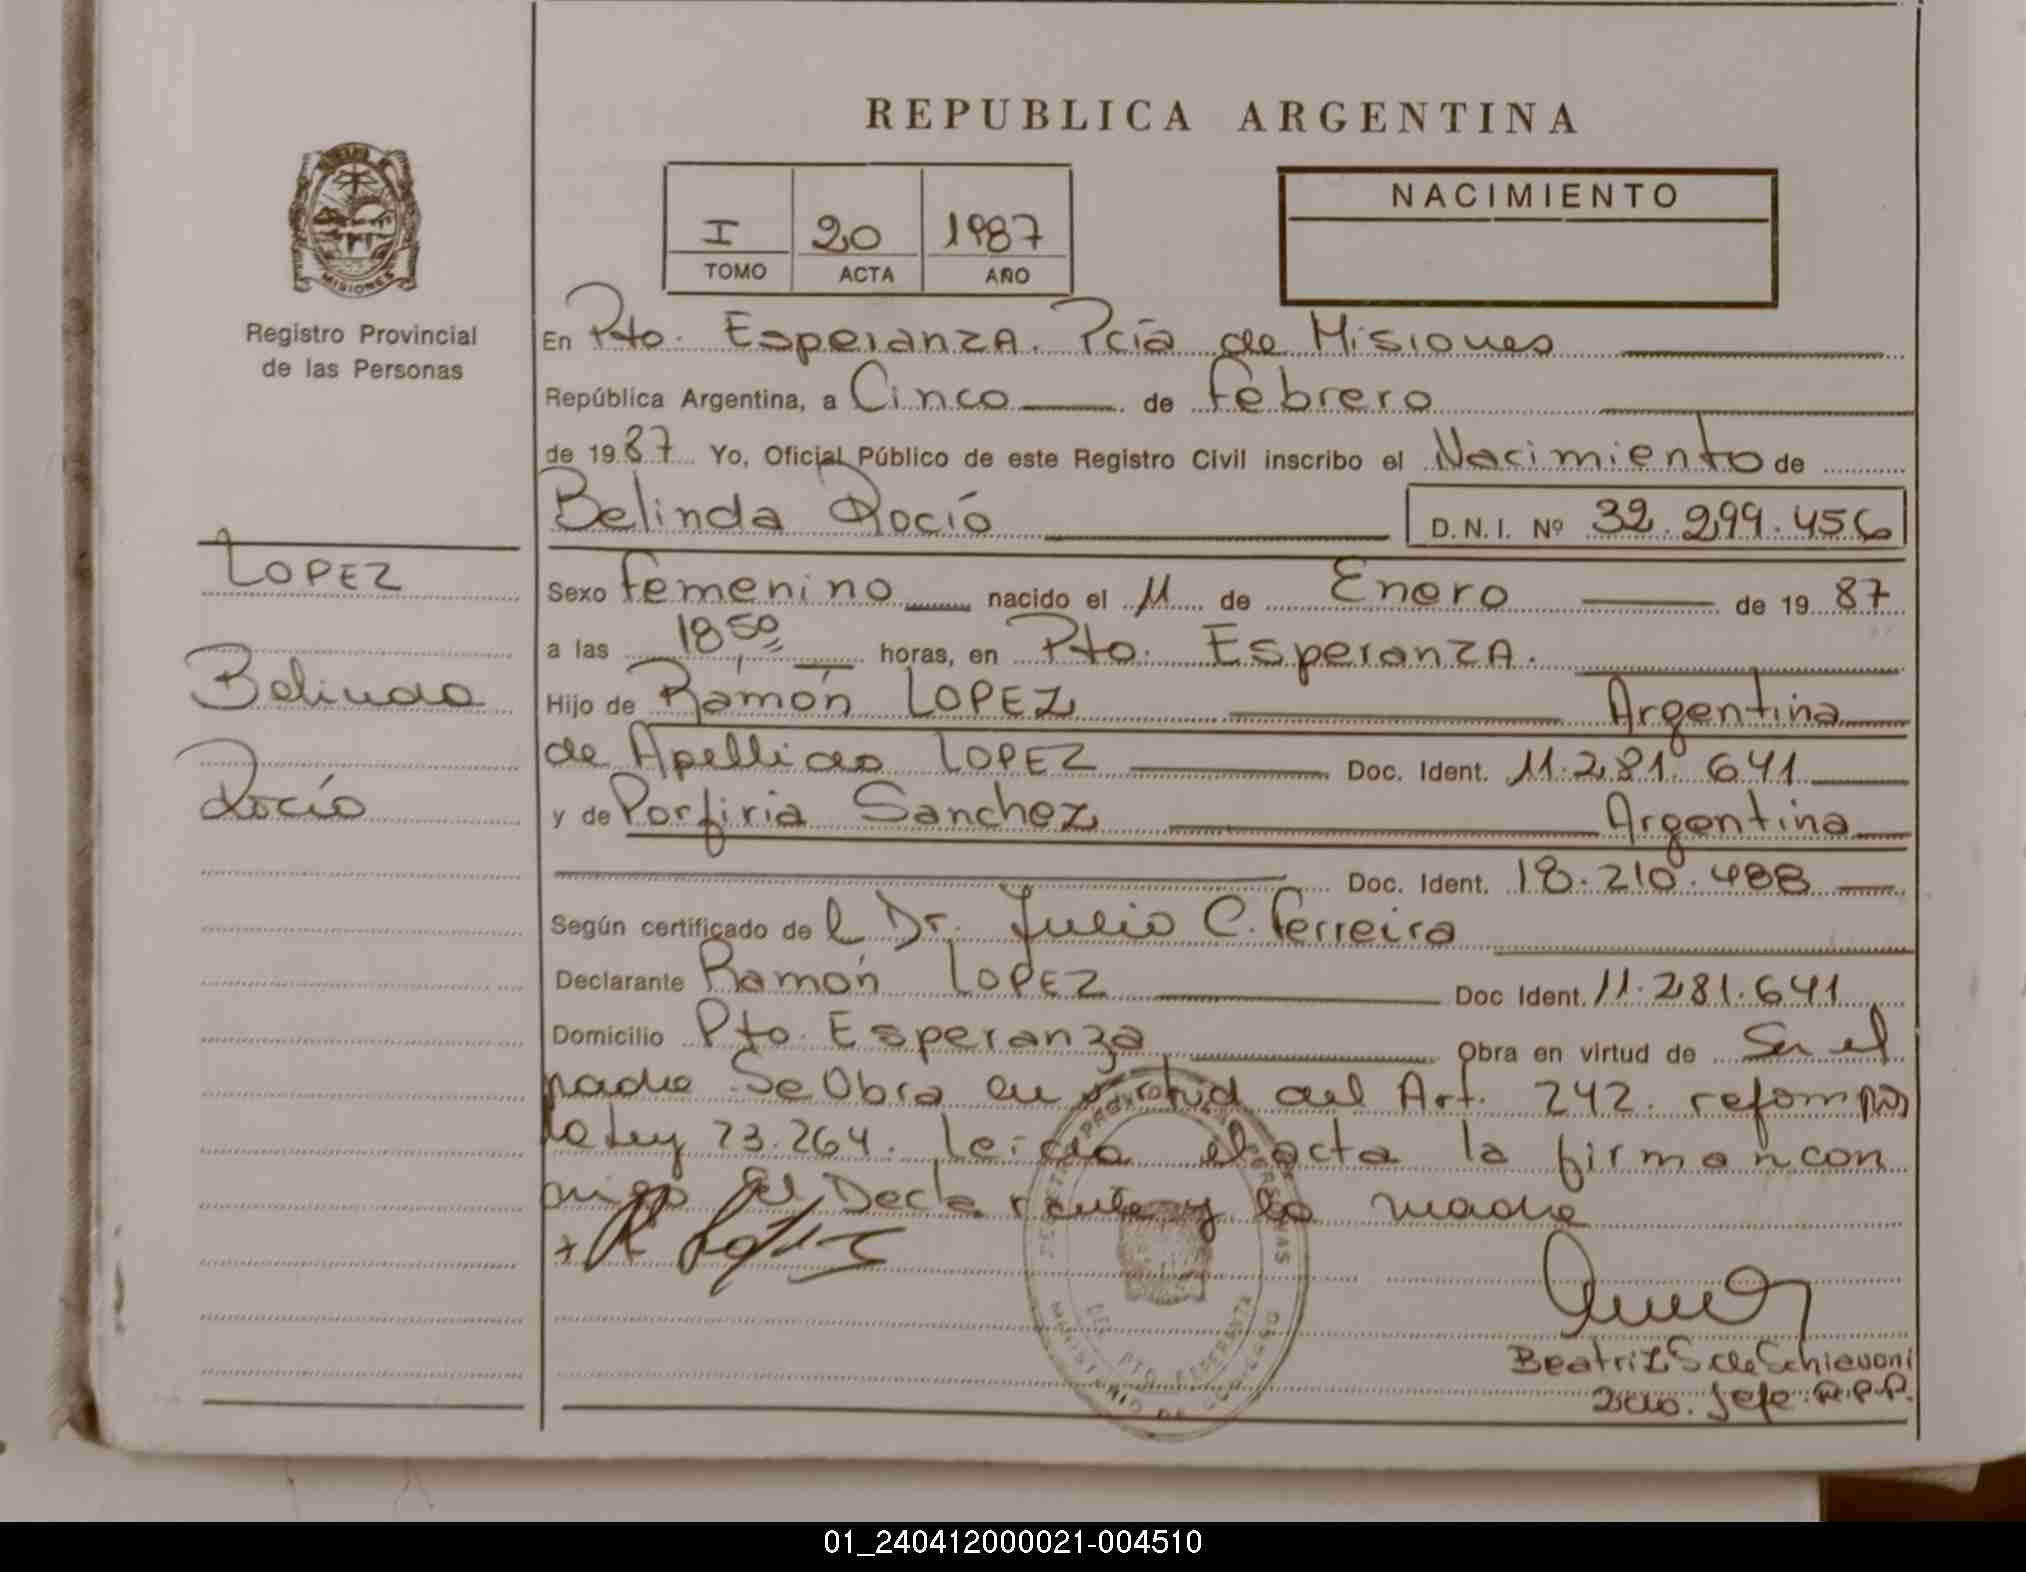 REPUBLICA ARGENTINA
MISIONES
Registro Provincial
de las Personas
I 20 1987
TOMO ACTA AÑO
NACIMIENTO
En Pto. Esperanza. Pcia de Misiones
República Argentina, a Cinco de Febrero
de 1987 Yo, Oficial Público de este Registro Civil inscribo el Nacimiento de
Belinda Rocío D.N.I. Nº 32.299.456
LOPEZ
Belinda
Rocío
Sexo Femenino nacido el 11 de Enero de 1987
a las 18,50 horas, en Pto. Esperanza.
Hijo de Ramón LOPEZ Argentina
de Apellido LOPEZ Doc. Ident. 11.281.641
y de Porfiria Sanchez Argentina
Doc. Ident. 18.210.488
Según certificado del Dr. Julio C. Ferreira
Declarante Ramón LOPEZ Doc Ident. 11.281.641
Domicilio Pto. Esperanza Obra en virtud de Ser el
padre Se Obra en virtud del Art. 242. reform por
la Ley 23.264. Leída el acta la firman con
migo el Declarante y la madre
Beatriz S de Schiavoni
Jefe R.P.P.
DEL PTO ESPERANZA
MINISTERIO DE GOBIERNO
01_240412000021-004510